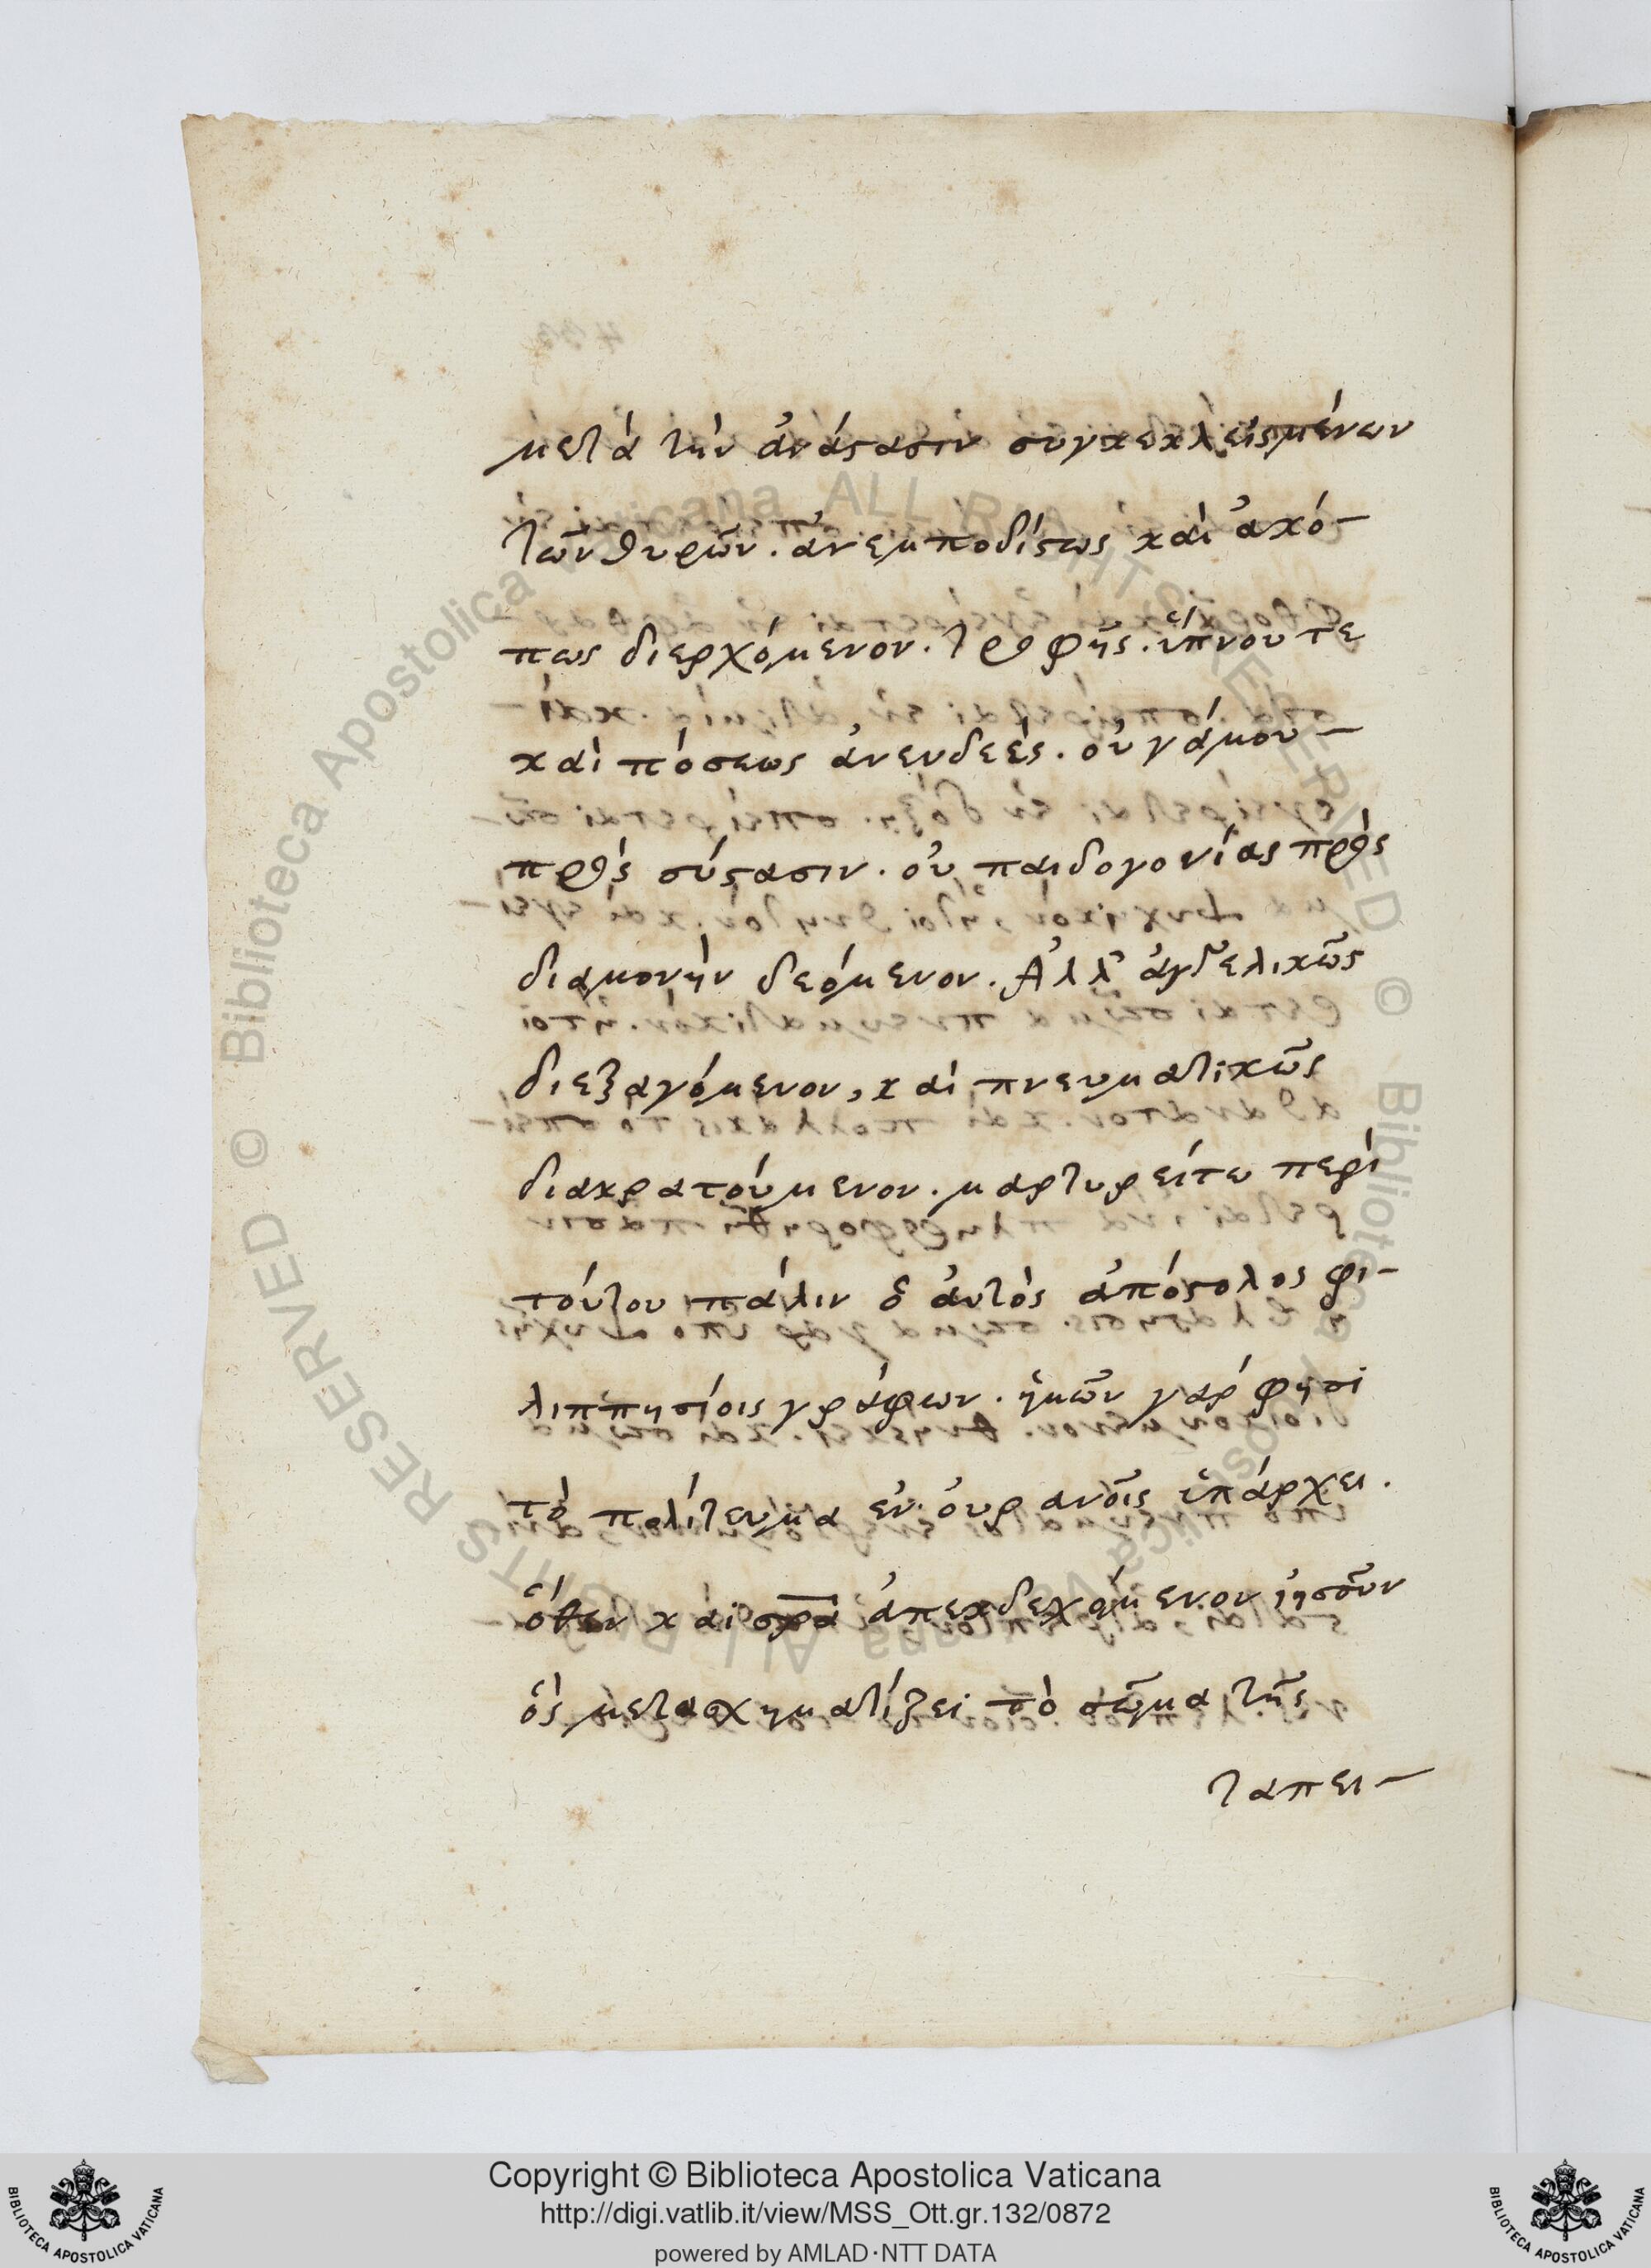 μετὰ τὴν ἀνάστασιν συγκεκλεισμένων
τῶν θυρῶν. ἀνεμποδίστως καὶ ἀκό-
πως διερχόμενον. τροφῆς. ὕπνου τε
καὶ πόσεως ἀνενδεές. οὐ γάμου-
πρὸς σύστασιν. οὐ παιδογονίας πρὸς
διαμονὴν δεόμενον. Ἀλλ' ἀγγελικῶς
διεξαγόμενον, καὶ πνευματικῶς
διακρατούμενον. μαρτυρείτω περὶ
τούτου πάλιν ὁ αὐτὸς ἀπόστολος φι-
λιππησίοις γράφων. ἡμῶν γάρ φησι
τὸ πολίτευμα ἐν οὐρανοῖς ὑπάρχει.
ὅθεν καὶ σρα ἀπεκδεχόμενον ἰησοῦν
ὃς μετασχηματίζει τὸ σῶμα τῆς
ταπει-
© Biblioteca Apostolica Vaticana ALL RIGHTS RESERVED
© Biblioteca Apostolica Vaticana ALL RIGHTS RESERVED
BIBLIOTECA APOSTOLICA VATICANA
Copyright © Biblioteca Apostolica Vaticana
http://digi.vatlib.it/view/MSS_Ott.gr.132/0872
powered by AMLAD·NTT DATA
BIBLIOTECA APOSTOLICA VATICANA